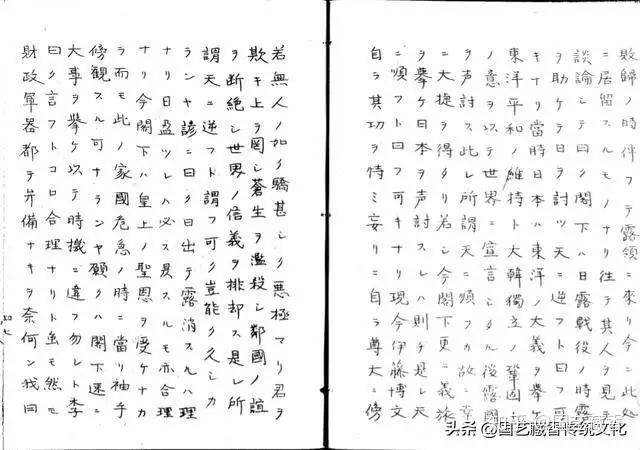 敗歸ノ時伴フテ露領ニ來リ今ニ此処
ニ居留スルモノナリ往テ其人ヲ見テ
談論シテ曰ク閣下ハ日露戰役ノ時露
ヲ助ケテ日ヲ討ツ天ニ逆フト曰フ可
キナリ當時日本ハ東洋ノ大義ヲ擧ケ
東洋平和ノ維持ト大韓獨立ノ鞏固
ノ意ヲ以テ世界ニ宣言シタル後露國
ヲ声討ス此レ所謂天ニ順フ故ニ幸
ニ大捷ヲ得タリ若シ今閣下更ニ義旅
ヲ擧ケ日本ヲ声討スレハ則チ是レ天
ニ順フト曰フ可キナリ現今伊藤博文
自ラ其功ヲ恃ミ妄リニ自ラ尊大ニ傍
若無人ノ如ク驕甚シク悪極マリ君ヲ
欺キ上ヲ罔シ蒼生ヲ濫殺シ鄰國ノ誼
ヲ断絶シ世界ノ信義ヲ排却ス是レ所
謂天ニ逆フト謂フ可ク豈能ク久シカ
ランヤ諺ニ曰ク日出テ露消スルハ理
ナリ日盈ツレハ必ス昃スルモ亦合理
ナリ今閣下ハ皇上ノ聖恩ヲ受ケナカ
ラ而モ此ノ家國危急ノ時ニ當リ袖手
傍観スル可ナランヤ願クハ閣下速ニ
大事ヲ擧ケ以テ時機ニ違フ勿レト李
曰ク言フトコロ合理ナリト虽モ然モ
財政軍器都テ弁備ナキヲ奈何ン我曰
头条 @国艺藏智传统文化